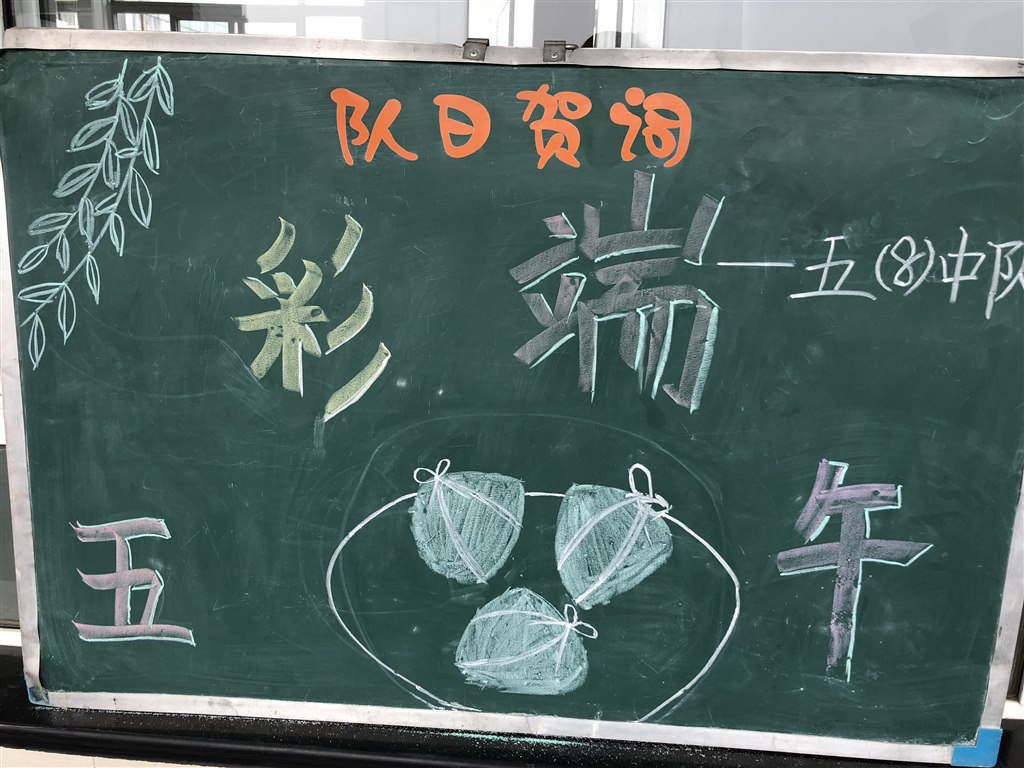 队日贺词
彩 端
——五(8)中队
五 午